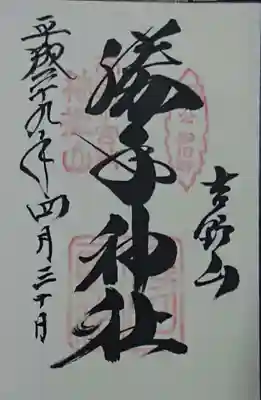 吉野山
勝手神社
平成二十九年四月三十日